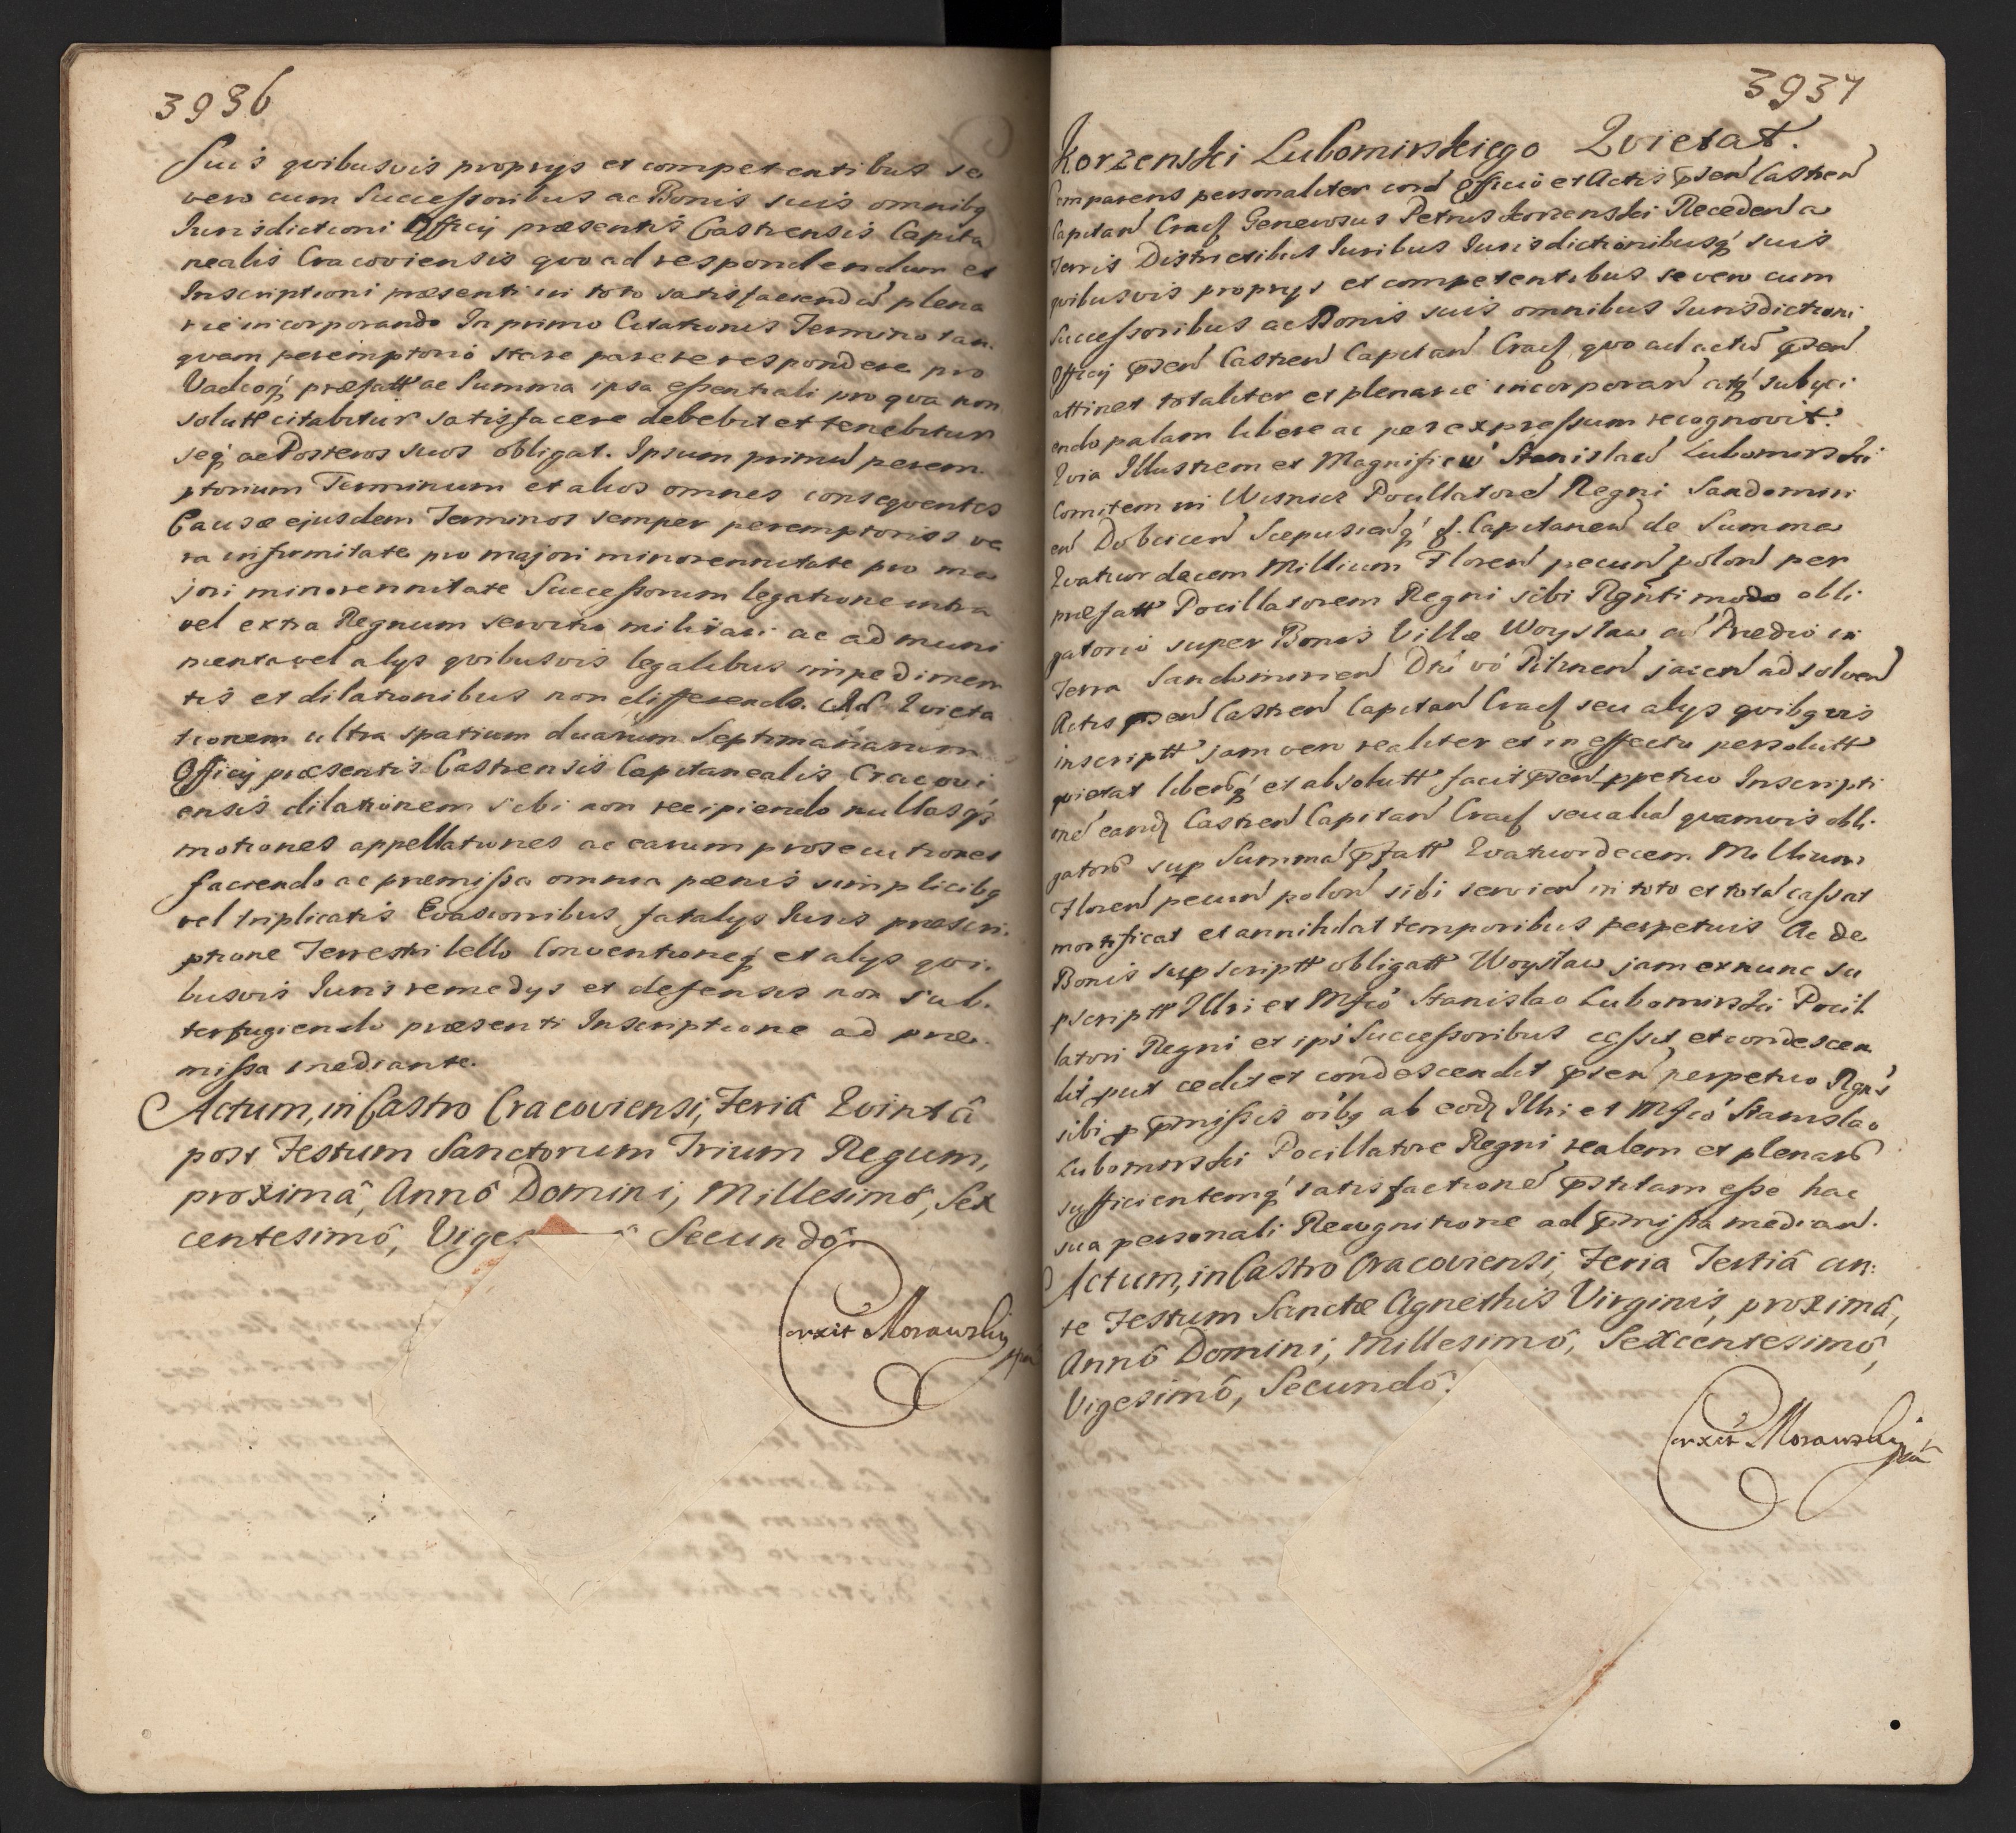 3936
Suis qvibusvis proprys et competentibus se
vero cum Successoribus ac Bonis suis omnibq
Jurisdictioni Officij præsentis Castrensis Capita
nealis Cracoviensis qvo ad respondendum et
Inscriptioni præsenti in toto satisfaciendū plena
rie incorporando In primo Citationis Termino tan.
qvam peremptorio stare parere respondere pro
Vadioq præfatt ac Summa ipsa essentiali pro qva non
solutt citabitur satisfacere debebit et tenebitur
seq ac Posteros suos obligat. Ipsum primū perem
ptorium Terminum et alios omnes conseqventes
Causæ ejusdem Terminos semper peremptorios ve
ra infirmitate pro majori minorennitate pro ma
jori minorennitate Successorum legatione intra
vel extra Regnum servitio militari ac ad muni
menta vel alys qvibusvis legalibus impedimen
tis et dilationibus non differendo. Ad Evicta
tionem ultra spatium duarum Septimanarum
Officij præsentis Castrensis Capitanealis Cracovi
ensis dilationem sibi non recipiendo nullasq
motiones appellationes ac earum prosecutiones
faciendo ac præmissa omnia pœnis simplicibq
vel triplicatis Evasionibus fatalys Juris præscri.
ptione Terrestri bello Conventioneq et alys qvi.
busvis Juris remedys et defensis non sub.
terfugiendo præsenti Inscriptione ad præ.
missa mediante.
Actum, in Castro Cracoviensi, Feriâ Qvintâ
post Festum Sanctorum Trium Regum,
proximâ, Annô Domini, Millesimô, Sex
centesimô, Viges Secundô.
orxit Morawski
3937
Korzenski Lubomirskiego Qvietat.
Comparens personaliter cord Officio et Actis psen Castren
Capitan Cracᵢ Generosus Petrus Korzenski Receden a
Terris Districtibus Juribus Jurisdictionibusq suis
qvibusvis proprys et competentibus se vero cum
Successoribus ac Bonis suis omnibus Jurisdictioni
Officij psen Castren Capitan Crac qvo ad actū psen
attinet totaliter et plenarie incorporan atq subyci
endo palam libere ac per expressum recognovit.
Qvia Illustrem et Magnificū Stanislaū Lubomirski
Comitem in Wisnicz Pocillatorē Regni Sandomiri
en Dobcicen Scepusienq Capitaneū de Summa
Qvatuordecem Millium Floren pecun polon per
præfatt Pocillatorem Regni sibi Rgnti modo obli
gatorio super Bonis Villæ Woyslaw cū Prædio in
Terra Sandomirien Dtū vō Pilznen jacen ad solven
Actis psen Castren Capitan Crac seu alys qvibqvis
inscriptt jam vero realiter et in effectu persolutt
qvietat liberūq et absolutt facit psen ppetuo Inscripti
onē eandz Castren Capitan Crac seu aliā qvamvis obli.
gatorō sup Summā pfatt Qvatuordecem Millium
Floren pecun polon sibi servien in toto et totā cassat
mortificat et annihilat temporibus perpetuis Ac de
Bonis supscriptt obligatt Woyslaw jam ex nunc su
pscriptt Illri et Mfcō Stanislao Lubomirski Pocil
latori Regni et ipi Successoribus cessit et condescen
dit put cedit et condescendit psen perpetuo Rgns
sibi p pmissis oibq ab eodz Illri et Mfcō Stanislao
Lubomirski Pocillatore Regni realem et plenarō
sufficientemq satisfactionē pstitam esse hac
sua personali Recognitione ad pmissa median.
Actum, in Castro Cracoviensi, Feria Tertiâ an:
te Festum Sanctæ Agnethis Virginis, proximâ,
Annô Domini, Millesimô, Sexcentesimô,
Vigesimô, Secundô.
orxit Morawski